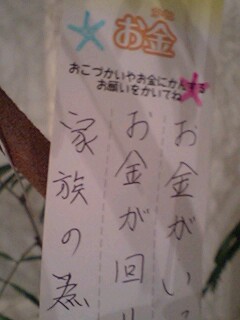 お金
おこづかいやお金にかんする
お願いをかいてね
お金がい
お金が回り
家族の為